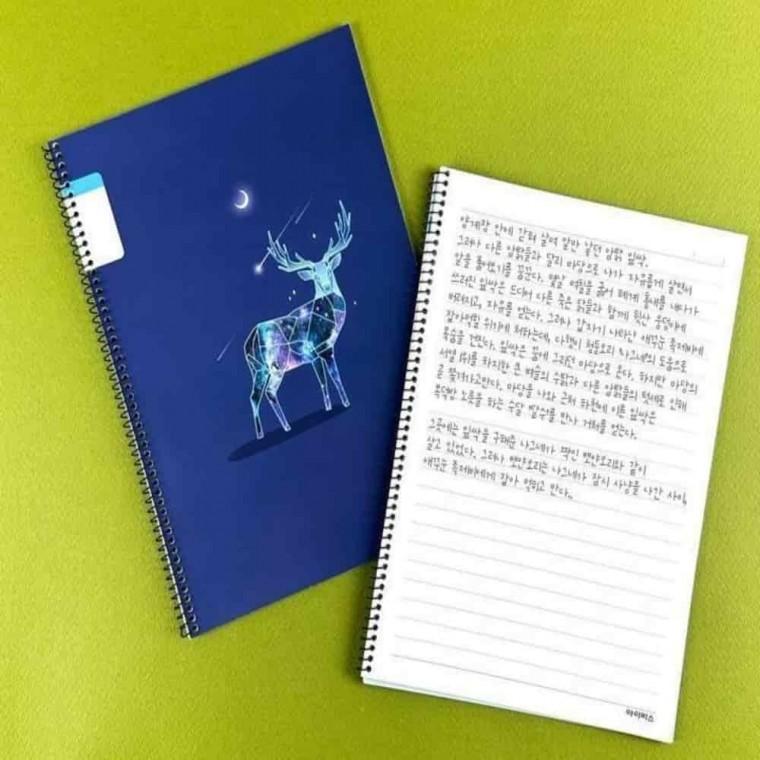 양계장 안에 갇혀 살며 알만 낳던 암탉 잎싹.
그러나 다른 암탉들과 달리 마당으로 나가 자유롭게 살면서
알을 품어보기를 꿈꾼다. 몇날 며칠을 굶어 폐계 흉내를 내다가
쓰러진 잎싹은 드디어 다른 죽은 닭들과 함께 뒷산 웅덩이에
버려지고, 자유를 얻는다. 그러나 갑자기 나타난 애꾸눈 족제비에
잡아먹힐 위기에 처하는데, 다행히 청둥오리 나그네의 도움으로
목숨을 건진다. 잎싹은 꿈에 그리던 마당으로 온다. 하지만 마당의
서열 1위를 차지한 큰 벼슬의 수탉과 다른 암탉들의 텃세로 인해
곧 쫓겨나고만다. 마당을 나와 근처 하천에 이른 잎싹은
복덕방 노릇을 하는 수달 달수를 만나 거처를 얻는다.
그곳에는 잎싹을 구해준 나그네가 짝인 뽀얀오리와 같이
살고 있었다. 그러나 뽀얀오리는 나그네가 잠시 사냥을 나간 사이,
애꾸눈 족제비에게 잡아 먹히고 만다.